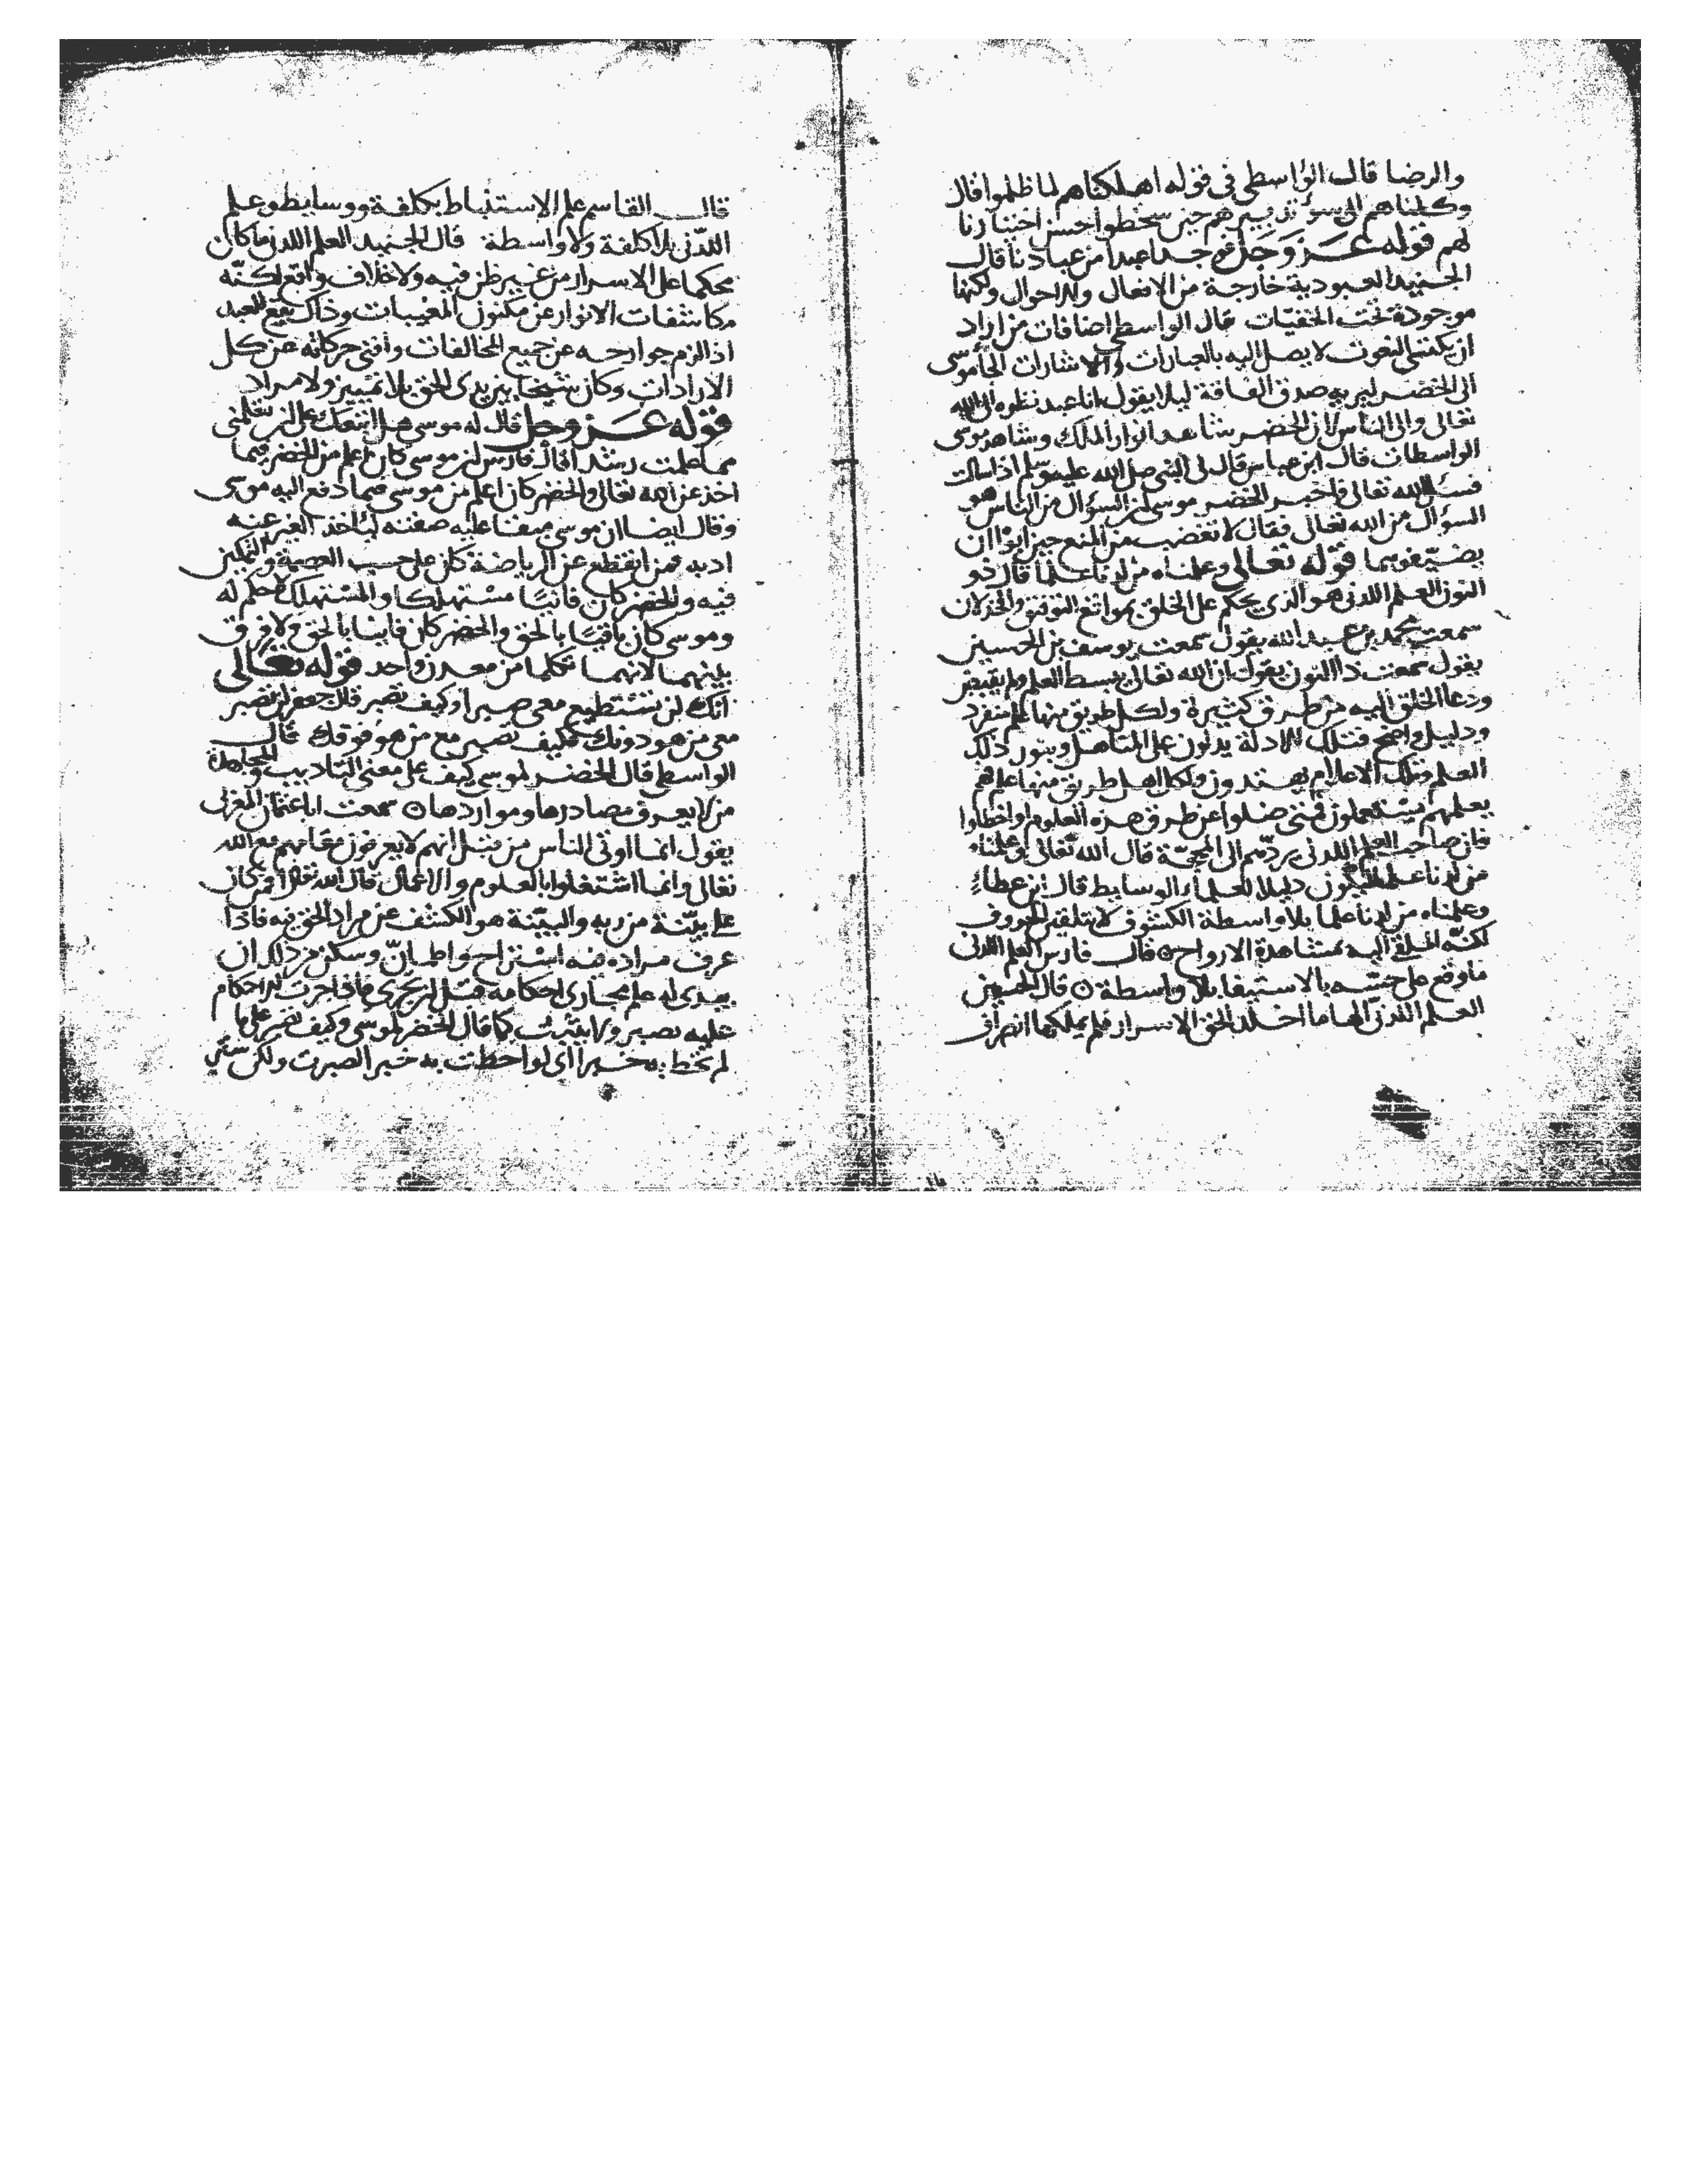 والرضا قال الواسطي في قوله اهلكناهم لما ظلموا قال
وكلناهم الى سوء تدبيرهم حين سخطوا حسن اختيارنا
لهم قوله عز وجل فوجدا عبدا من عبادنا قال
الجنيد العبودية خارجة من الافعال والاحوال ولكنها
موجودة تحت الخفيات قال الواسطي اضافات من اراد
ان يكتفى النعوت لا يصل اليه بالعبارات والاشارات الجأ موسى
الى الخضر ليريه صدق الفاقة ليلا يقول انا عبد نظره الى الله
تعالى والى الناس لان الخضر شاهد انوار الملك وشاهد موسى
الواسطات قال ابن عباس قال لي النبي صلى الله عليه وسلم اذا سالت
فسئل الله تعالى فاخبر الخضر موسى ان السؤال من الناس هو
السؤال من الله تعالى فقال لا تغضب من المنع حين ابوا ان
يضيفوهما قوله تعالى وعلمناه من لدنا علما قال ذو
النون العلم اللدني هو الذي يحكم على الخلق بمواقع التوفيق والخذلان
سمعت محمد بن عبد الله يقول سمعت يوسف بن الحسين
يقول سمعت ذا النون يقول ان الله تعالى بسط العلم ولم يقبض
ودعا الخلق اليه من طرق كثيرة ولكل طريق منها علم منفرد
ودليل واضح فتلك الادلة يدلون على المتاهل وبنور ذلك
العلم وتلك الاعلام يهتدون ولكل اهل طريق منها علم هم
بعلمهم يستعملون فمتى ضلوا عن طرق هذه العلوم او اخطاوا
فان صاحب العلم اللدني يردهم الى المحجة قال الله تعالى وعلمناه
من لدنا علما ليكون دليلا للعلماء الوسايط قال ابن عطاء
وعلمناه من لدنا علما بلا واسطة الكشوف لا بتلقين الحروف
لكنه الملقى اليه بمشاهدة الارواح قال فارس العلم اللدني
ما وقع على حبته بالاستيفا بلا واسطة قال الحسين
العلم اللدني الهاما اخلد الحق الاسرار فلم يملكها انصراف
قال القاسم علم الاستنباط بكلفة ووسايط وعلم
اللدني بلا كلفة ولا واسطة قال الجنيد العلم اللدني ما كان
محكما على الاسرار من غير ظن فيه ولا خلاف واقع لكنه
مكاشفات الانوار عن مكنون المغيبات وذاك يقع للعبد
اذا لزم جوارحه عن جميع المخالفات وافنى حركاته عن كل
الارادات وكان شبحا بين يدي الحق بلا تمييز ولا مراد
قوله عز وجل قال له موسى هل اتبعك على ان تعلمني
مما علمت رشدا قال فارس ان موسى كان اعلم من الخضر فيما
اخذ عن الله تعالى والخضر كان اعلم من موسى فيما دفع اليه موسى
وقال ايضا ان موسى مبقا عليه صفته لياخذ الغير عنه
ادبه فمن انقطع عن الرياضة كان على حسب العصمة والتمكين
فيه والخضر كان فانيا مستهلكا والمستهلك لا حكم له
وموسى كان باقيا بالحق والخضر كان فانيا بالحق ولا فرق
بينهما لانهما تكلما من معدن واحد قوله تعالى
انك لن تستطيع معي صبرا وكيف تصبر قال جعفر لن تصبر
معي من هو دونك فكيف تصبر مع من هو فوقك قال
الواسطي قال الخضر لموسى كيف على معنى التاديب والمجاهدة
من لا يعرف مصادرها ومواردها سمعت ابا عثمان المغربي
يقول انما اوتي الناس من قبل انهم لا يعرفون مقامهم مع الله
تعالى وانما اشتغلوا بالعلوم والاعمال قال الله تعالى افمن كان
على بينة من ربه والبينة هو الكشف عن مراد الحق فيه فاذا
عرف مراده فيه استراح واطمان وسكن من ذلك ان
يبدى له علم مجاري احكامه قبل ان تجري فاذا جرت الاحكام
عليه تصبر ولا يثبت كما قال الخضر لموسى وكيف تصبر على ما
لم تحط به خبرا اي لو احطت به خبرا لصبرت ولكن ستر